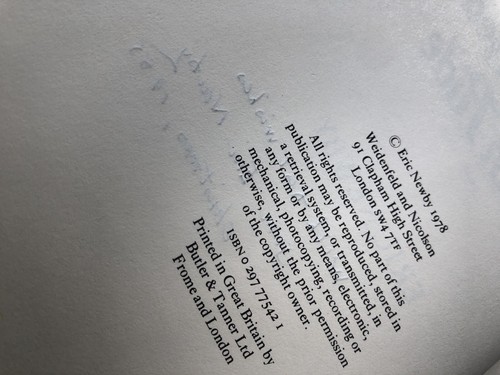 © Eric Newby 1978
Weidenfeld and Nicolson
91 Clapham High Street
London SW4 7TF
All rights reserved. No part of this
publication may be reproduced, stored in
a retrieval system, or transmitted, in
any form or by any means, electronic,
mechanical, photocopying, recording or
otherwise, without the prior permission
of the copyright owner.
ISBN 0 297 77542 1
Printed in Great Britain by
Butler & Tanner Ltd
Frome and London